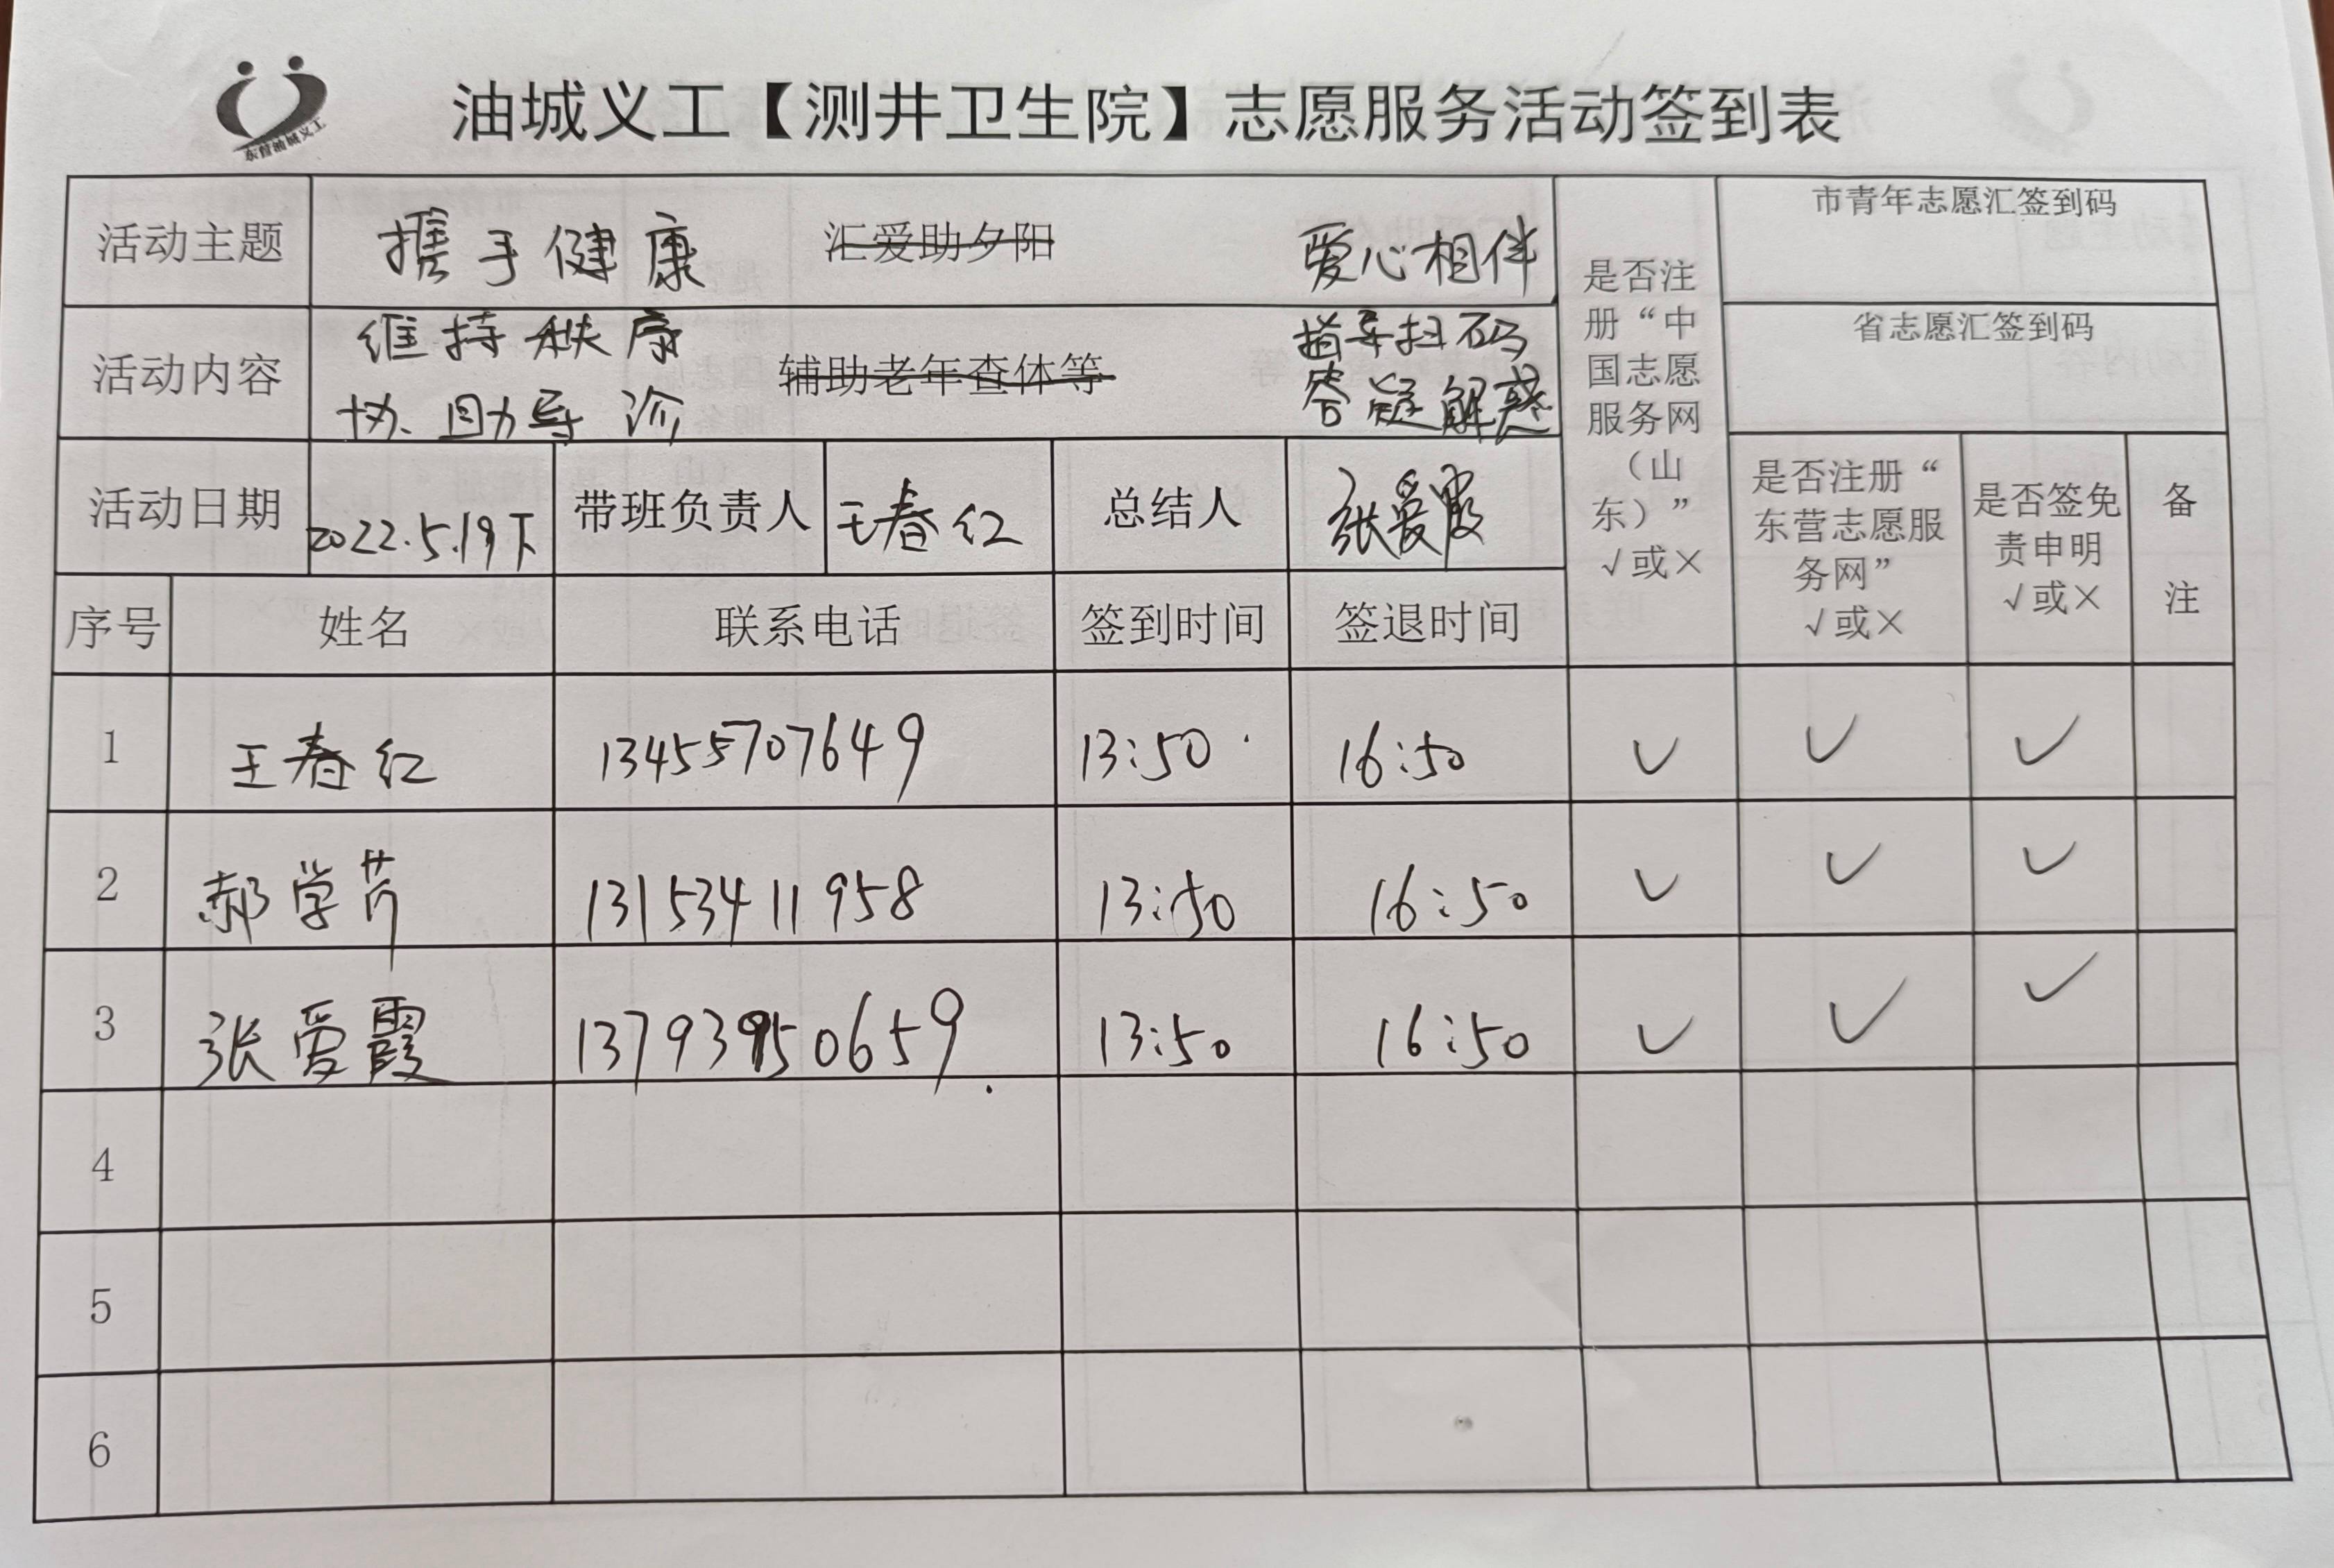 东营油城义工
油城义工【测井卫生院】志愿服务活动签到表
活动主题 携手健康 汇爱助夕阳 爱心相伴
活动内容 维持秩序 协助导诊 辅助老年查体等 指导扫码 答疑解惑
活动日期 2022.5.19下 带班负责人 王春红 总结人 张爱霞
是否注
册“中
国志愿
服务网
（山
东）”
√或×
市青年志愿汇签到码
省志愿汇签到码
是否注册“
东营志愿服
务网”
√或×
是否签免
责申明
√或×
备
注
序号 姓名 联系电话 签到时间 签退时间
1 王春红 13455707649 13:50 16:50 ✓ ✓ ✓
2 郝学芹 13153411958 13:50 16:50 ✓ ✓ ✓
3 张爱霞 13793950659 13:50 16:50 ✓ ✓ ✓
4
5
6